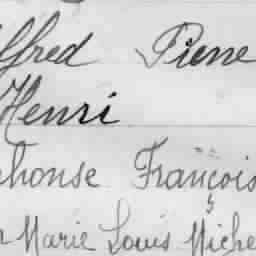 lfred Pierre
Henri
phonse François
n Marie Louis Miche